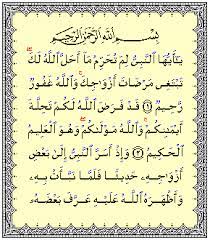 بِسْمِ اللَّهِ الرَّحْمَٰنِ الرَّحِيمِ
يَا أَيُّهَا النَّبِيُّ لِمَ تُحَرِّمُ مَا أَحَلَّ اللَّهُ لَكَ
تَبْتَغِي مَرْضَاتَ أَزْوَاجِكَ وَاللَّهُ غَفُورٌ
رَّحِيمٌ ١ قَدْ فَرَضَ اللَّهُ لَكُمْ تَحِلَّةَ
أَيْمَانِكُمْ وَاللَّهُ مَوْلَاكُمْ وَهُوَ الْعَلِيمُ
الْحَكِيمُ ٢ وَإِذْ أَسَرَّ النَّبِيُّ إِلَىٰ بَعْضِ
أَزْوَاجِهِ حَدِيثًا فَلَمَّا نَبَّأَتْ بِهِ
وَأَظْهَرَهُ اللَّهُ عَلَيْهِ عَرَّفَ بَعْضَهُ